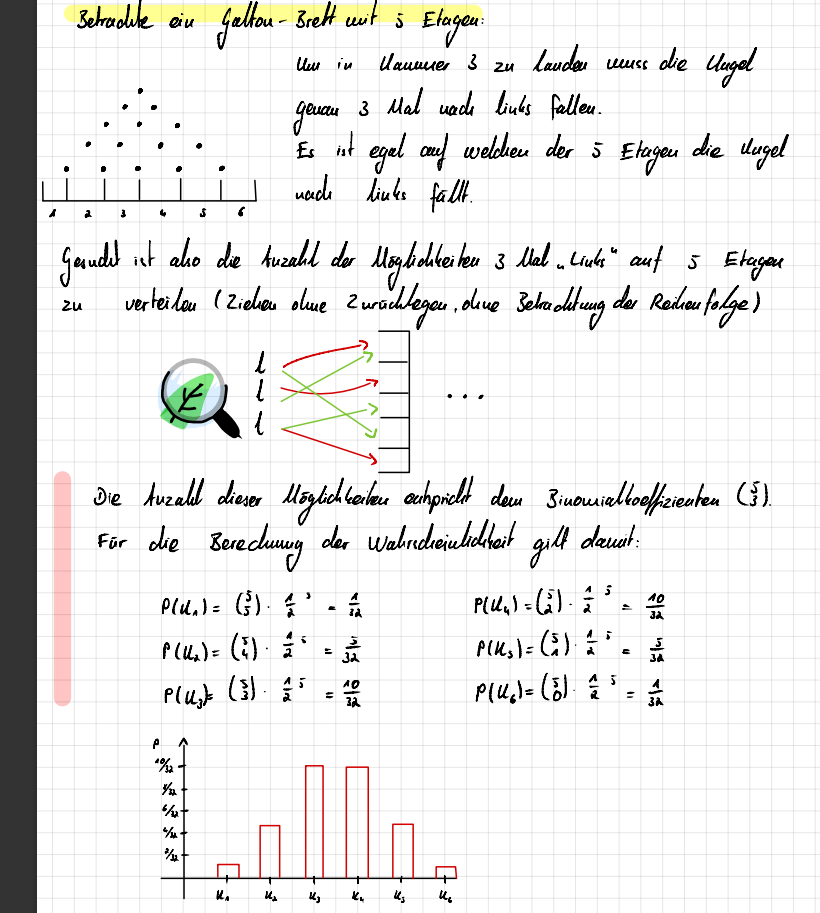 Betrachte ein Galton-Brett mit 5 Etagen:
Um in Kammer 3 zu landen muss die Kugel
genau 3 Mal nach links fallen.
Es ist egal auf welchen der 5 Etagen die Kugel
nach links fällt.
1 2 3 4 5 6
Gesucht ist also die Anzahl der Möglichkeiten 3 Mal „Links“ auf 5 Etagen
zu verteilen (Ziehen ohne Zurücklegen, ohne Betrachtung der Reihenfolge)
l
l
l
...
Die Anzahl dieser Möglichkeiten entspricht dem Binomialkoeffizienten (5 3).
Für die Berechnung der Wahrscheinlichkeit gilt damit:
P(K₁) = (5 5) · 1/2 ⁵ = 1/32 P(K₄) = (5 2) · 1/2 ⁵ = 10/32
P(K₂) = (5 4) · 1/2 ⁵ = 5/32 P(K₅) = (5 1) · 1/2 ⁵ = 5/32
P(K₃) = (5 3) · 1/2 ⁵ = 10/32 P(K₆) = (5 0) · 1/2 ⁵ = 1/32
P
10/32
8/32
6/32
4/32
2/32
K₁ K₂ K₃ K₄ K₅ K₆